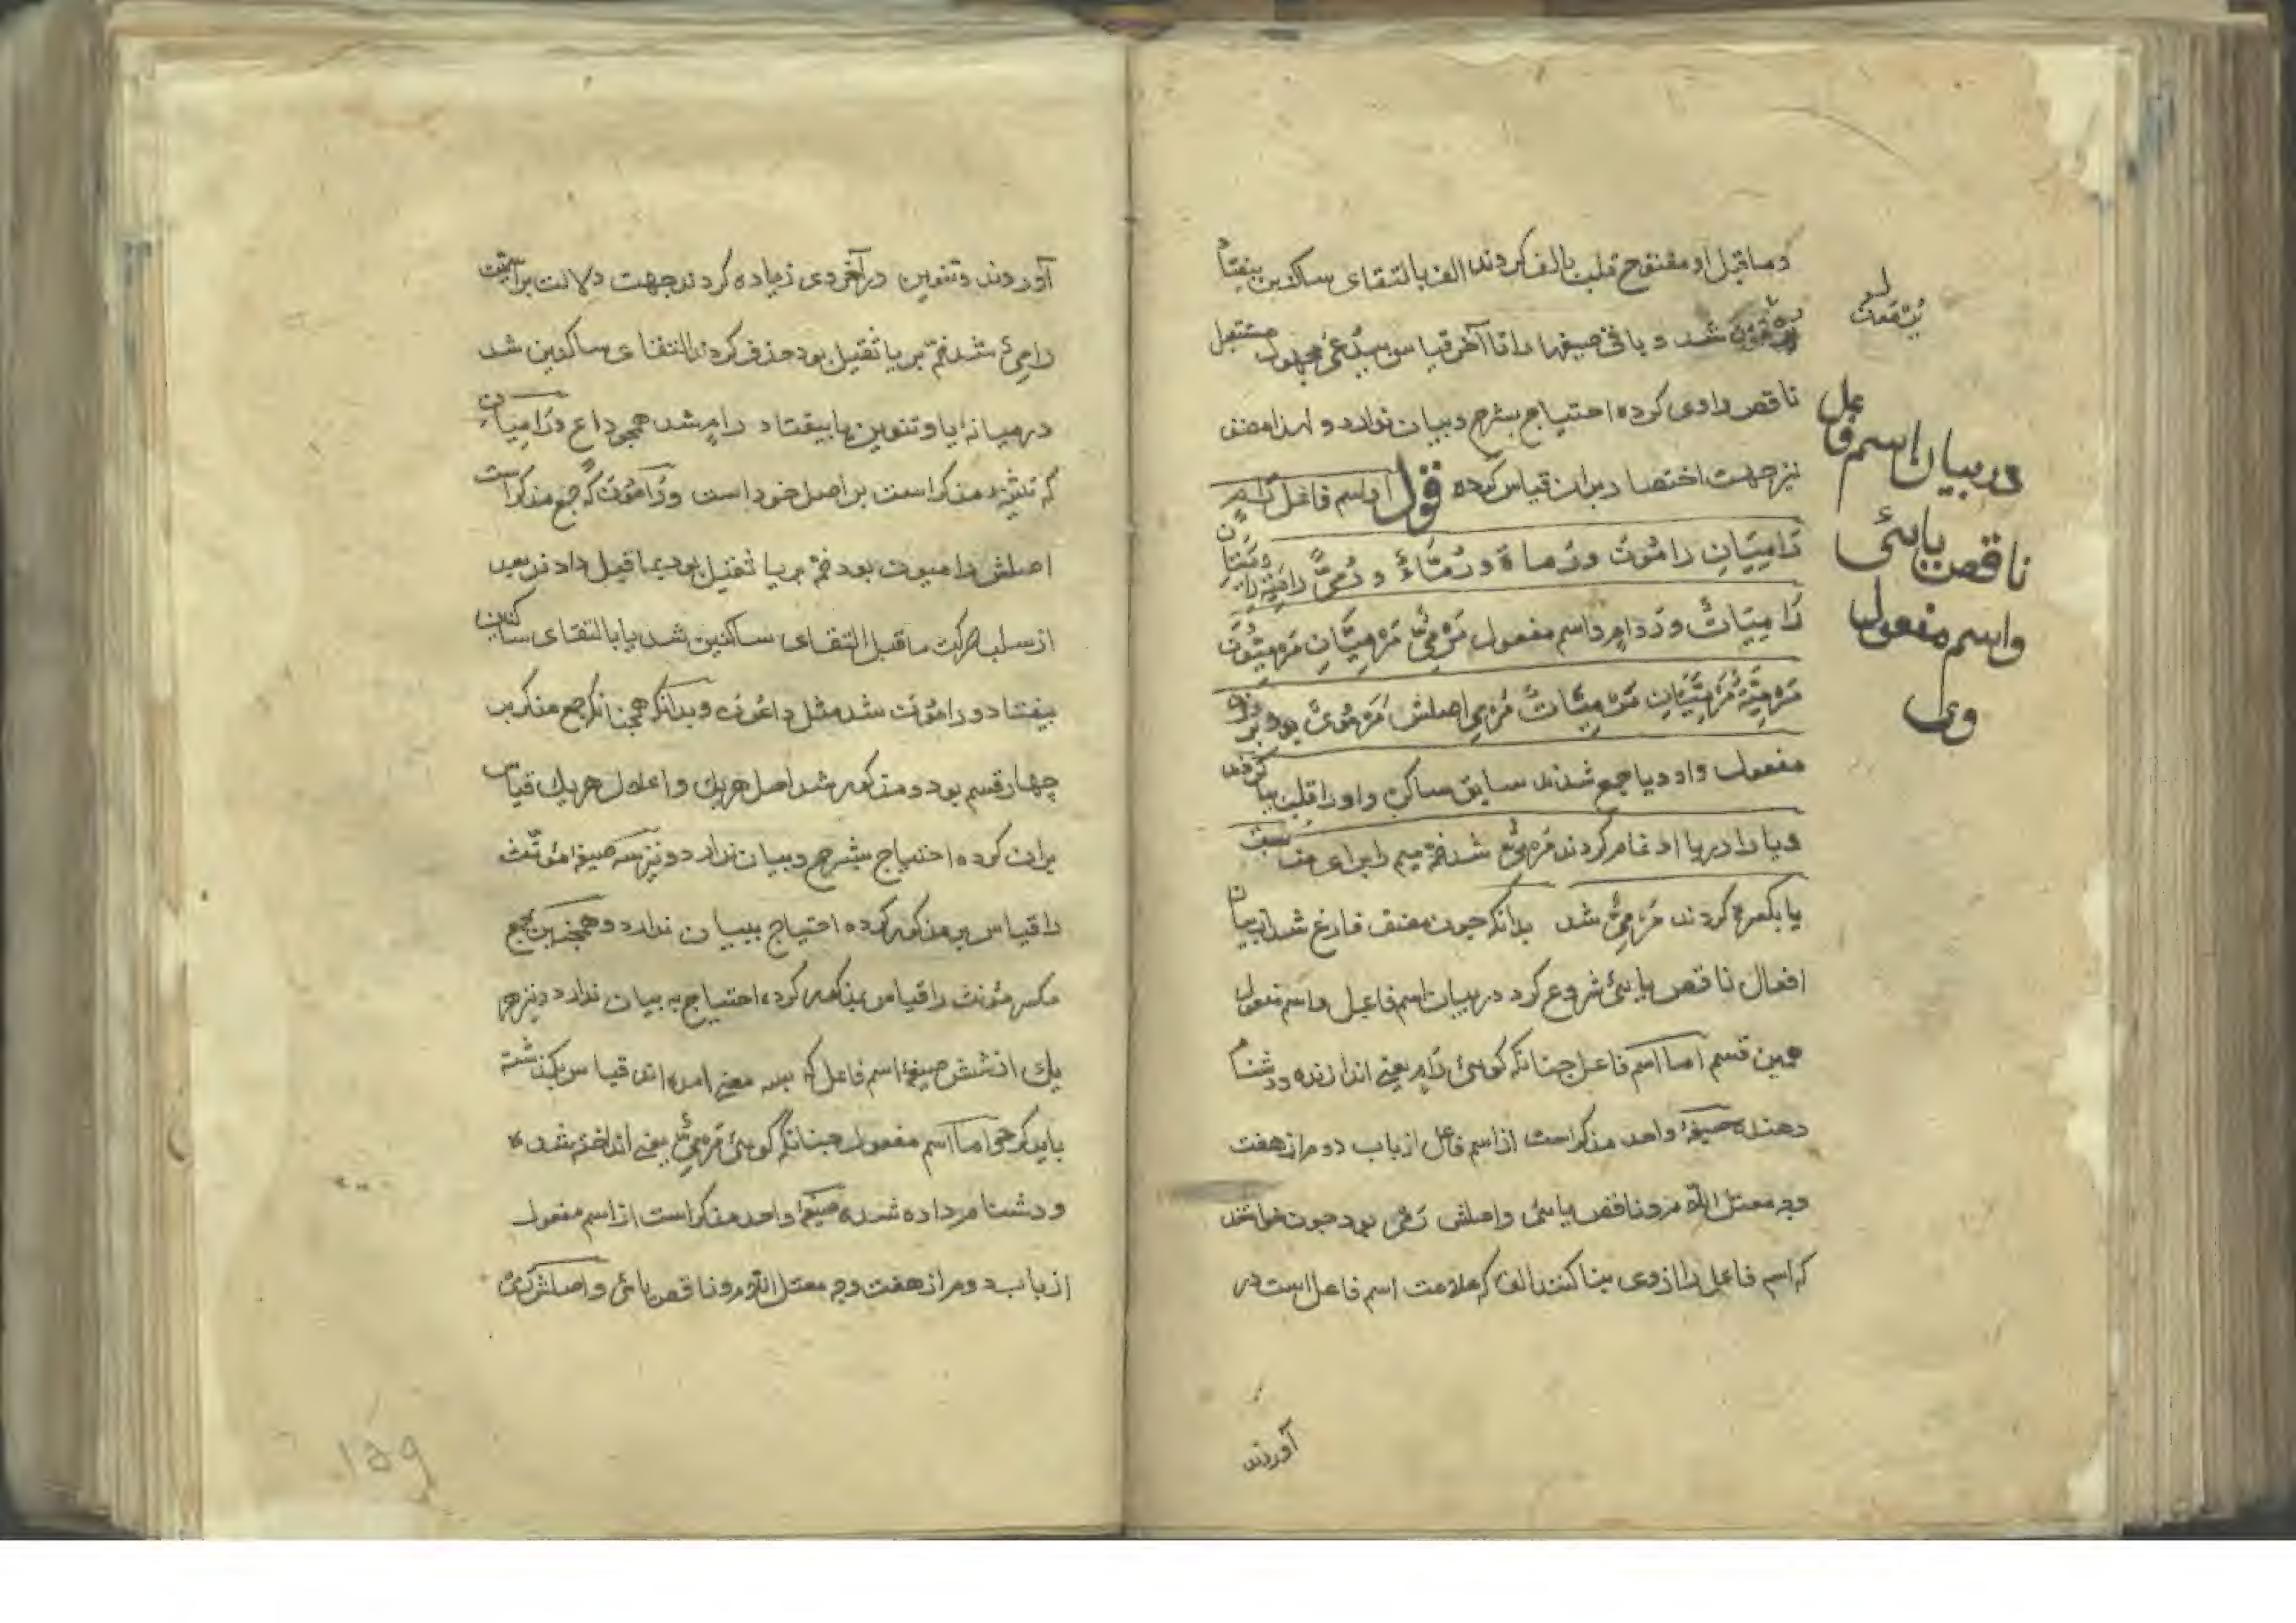 و ماقبل او مفتوح قلب بالف کردند الف بالتقای ساکنین بیفتاد
شد و باقی صیغها را تا آخر قیاس بیدعی مجهول مستقبل
ناقص واوی کرده احتیاج بشرح و بیان ندارد و لهذا مصنف
نیز جهت اختصار بران قیاس کرده قول او اسم فاعل رَامٍ
رَامِیَانِ رَامُونَ وَرُمَاةٌ وَرُمَّاءٌ وَرُمِیٌّ رَامِیَةٌ رَامِیَتَانِ
رَامِیَاتٌ وَرَوَامٍ و اسم مفعول مَرْمِیٌّ مَرْمِیَّانِ مَرْمِیُّونَ
مَرْمِیَّةٌ مَرْمِیَّتَانِ مَرْمِیَّاتٌ مَرْمِی اصلش مَرْمُویٌ بود بر وزن
مفعول واو و یا جمع شدند سابق ساکن واو را قلب بیا کردند
و یا را در یا ادغام کردند مَرْمُیٌّ شد ضمّه میم را برای مناسبت
یا بکسره کردند مَرْمِیٌّ شد بدانکه چون مصنف فارغ شد از بیان
افعال ناقص یایئ شروع کرد در بیان اسم فاعل و اسم مفعول
همین قسم اما اسم فاعل چنانکه کویی رَامٍ یعنی اندازنده و دشنام
دهنده صیغهٔ واحد مذکر است از اسم فاعل از باب دوم از هفت
وجه معتل اللّام و ناقص یایی و اصلش رَمْی بود چون خواستند
که اسم فاعل را از وی بنا کنند الف که علامت اسم فاعل است در
آوردند
در بیان اسم فاعل
ناقص یایئ
واسم مفعول
وی
آوردند و تنوین در آخر وی زیاده کردند جهت دلالت بر اسمیت
رامِیٌ شد ضمّه بر یا ثقیل بود حذف کردند التقای ساکنین شد
در میانهٔ یا و تنوین یا بیفتاد رامٍ شد همچو داع و رَامِیَانِ
که تثنیهٔ مذکر است بر اصل خود است و رَامُونَ که جمع مذکر است
اصلش رامیون بود ضمّه بر یا ثقیل بود بما قبل دادند بعد
از سلب حرکت ماقبل التقای ساکنین شد یا بالتقای ساکنین
بیفتاد و رامُونَ شد مثل داعُونَ و بدانکه همچنانکه جمع مذکر بر
چهار قسم بود و مذکور شد اصل هریک و اعلال هریک قیاس
بران کرده احتیاج بشرح و بیان ندارد و نیز سه صیغهٔ مؤنّث
را قیاس بر مذکور کرده احتیاج ببیان ندارد و همچنین جمع
مکسر مؤنث را قیاس بمذکور کرده احتیاج به بیان ندارد و نیز هر
یک از شش صیغهٔ اسم فاعل که بسه معنی امده اند قیاس بکذشته
باید کرد و اما اسم مفعول چنانکه گویی مَرْمِیٌّ یعنی انداخته شده
و دشنام داده شده صیغهٔ واحد مذکر است از اسم مفعول
از باب دوم از هفت وجه معتل اللّام و ناقص یایی و اصلش